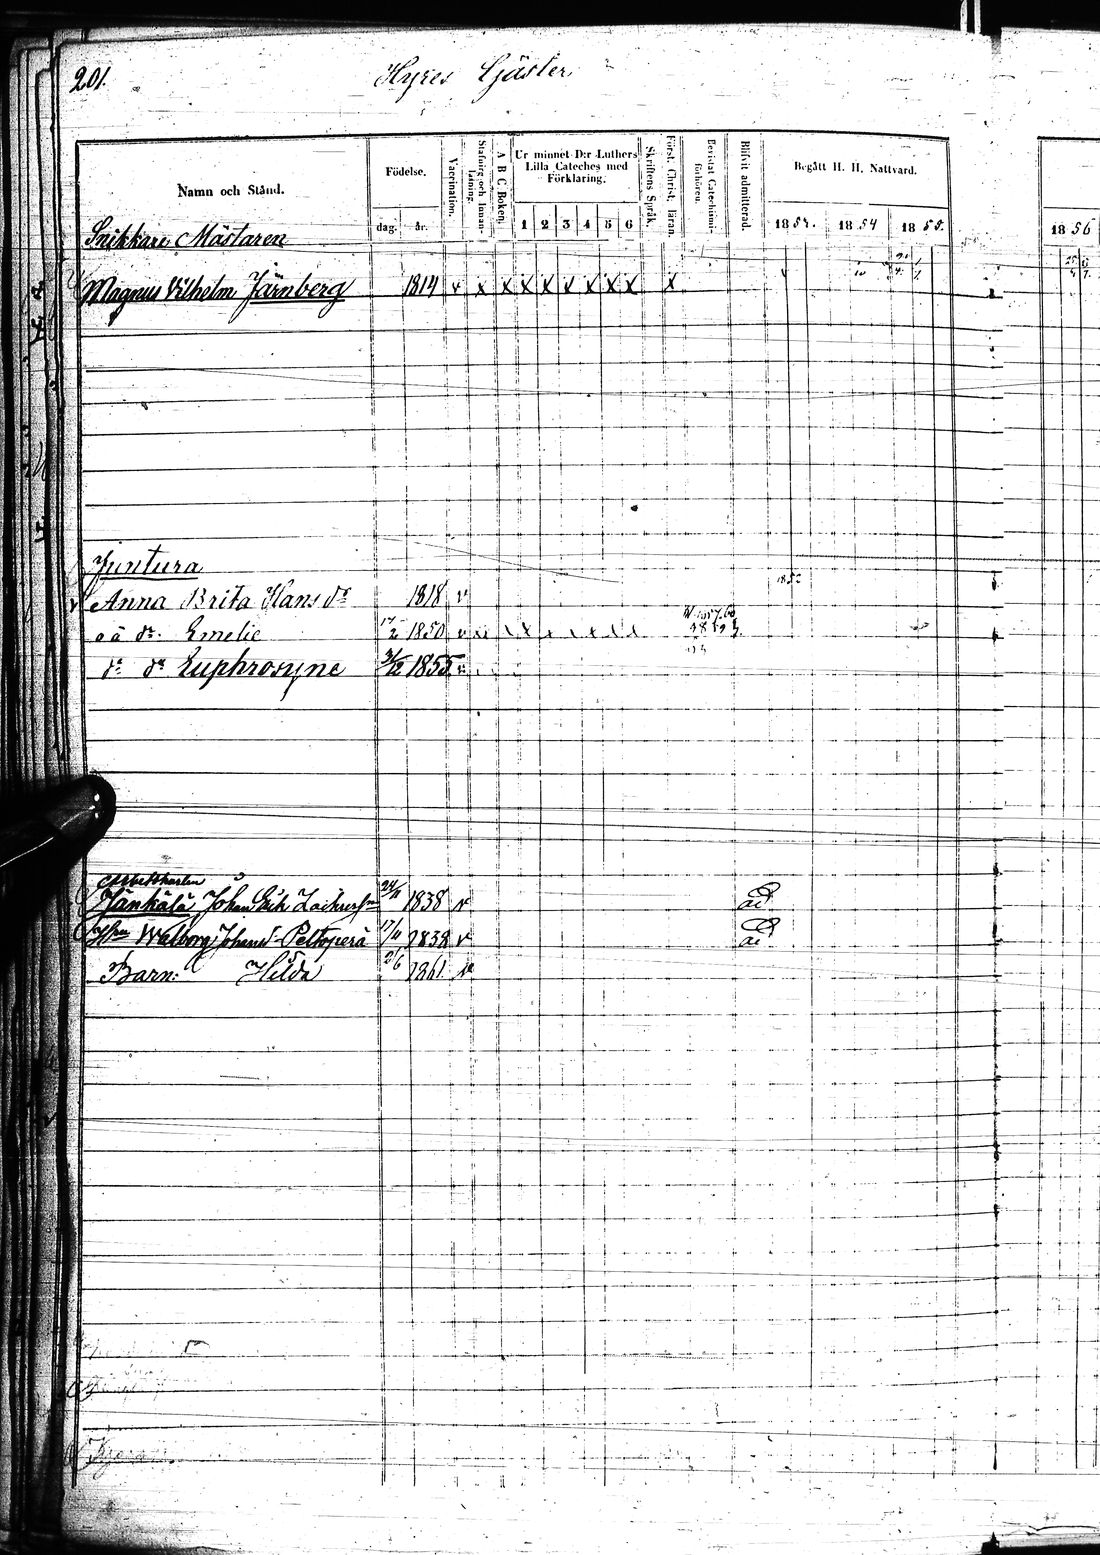 201.
Hyres Gäster
Namn och Stånd.
Födelse.
dag. år.
Vaccination.
Stafning och Innanläsning.
A B C Boken.
Ur minnet D:r Luthers Lilla Cateches med Förklaring.
1 2 3 4 5 6
Skriftens Språk.
Först. Christ. läran.
Bevistat Catechismiförhören.
Blifvit admitterad.
Begått H. H. Nattvard.
1854 1855.
1856
Snikkare Mästaren
Magnus Vilhelm Järnberg 1814 v x x x x v x x x x
Juntura
1852
Anna Brita Hans dr 1818 v
o ä dr. Emelie 17/2 1850 v
dr Euphrosyne 1855
Arbetskarlen
Jänkälä Johan Erik 1838 v
Walborg Johansd. Peltoperä 17/11 v
Barn: Hilda 2/6 1861 v